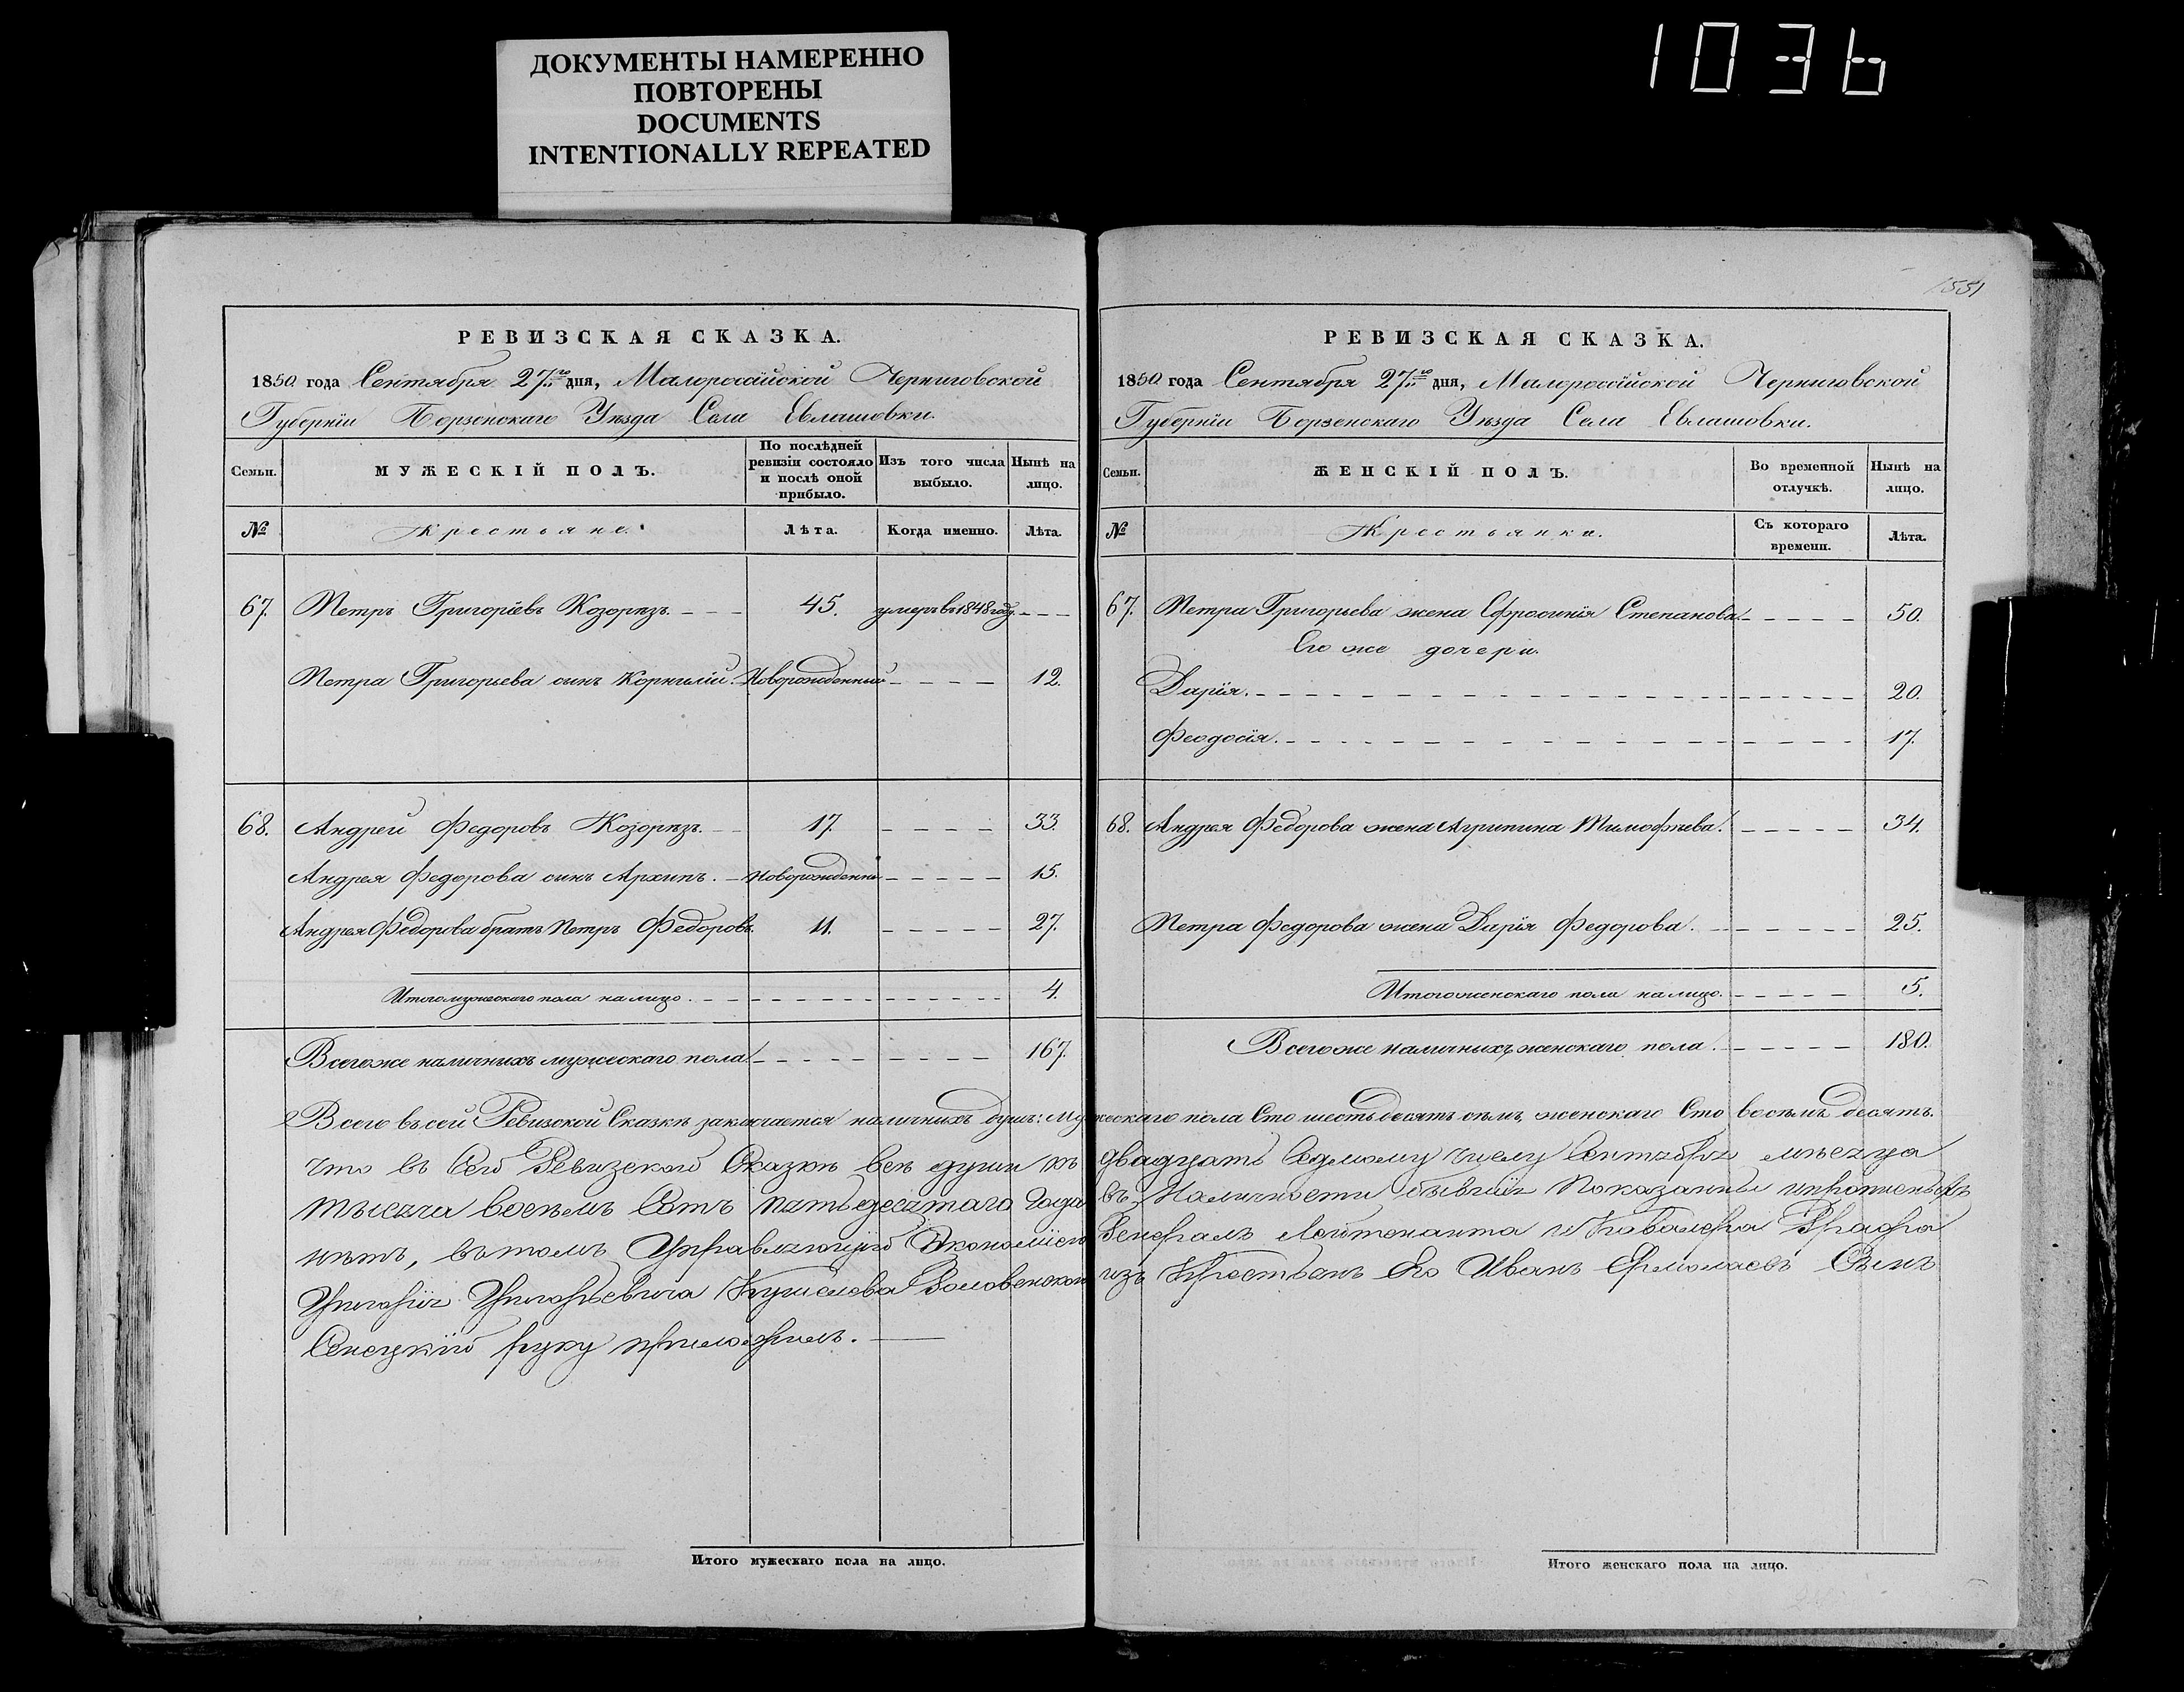 ДОКУМЕНТЫ НАМЕРЕННО
ПОВТОРЕНЫ
DOCUMENTS
INTENTIONALLY REPEATED
1036
РЕВИЗСКАЯ СКАЗКА.
1850 года Сентября 27го дня, Малороссійской Черниговской
Губерніи Борзенскаго Уѣзда Села Евлашовки.
Семьи.
МУЖЕСКІЙ ПОЛЪ.
По послѣдней ревизіи состояло и послѣ оной прибыло.
Изъ того числа выбыло.
Нынѣ на лицо.
№
Крестьяне.
Лѣта.
Когда именно.
Лѣта.
67. Петръ Григоріевъ Козорѣзъ. 45. умеръ въ 1848 году.
Петра Григорьева сынъ Корнилій. Новорожденный 12.
68. Андрей Федоровъ Козорѣзъ. 17. 33.
Андрея Федорова сынъ Архипъ. Новорожденный 15.
Андрея Федорова братъ Петръ Федоровъ. 11. 27.
Итого мужескаго пола на лицо. 4.
Всего же наличныхъ мужескаго пола. 167.
1551
РЕВИЗСКАЯ СКАЗКА.
1850 года Сентября 27го дня, Малороссійской Черниговской
Губерніи Борзенскаго Уѣзда Села Евлашовки.
Семьи.
ЖЕНСКІЙ ПОЛЪ.
Во временной отлучкѣ.
Нынѣ на лицо.
№
Крестьянки.
Съ котораго времени.
Лѣта.
67. Петра Григорьева жена Ефросинія Степанова. 50.
Его же дочери.
Дарія. 20.
Феодосія. 17.
68. Андрея Федорова жена Агрипина Тимофѣева. 34.
Петра Федорова жена Дарія Федорова. 25.
Итого женскаго пола на лицо. 5.
Всего же наличныхъ женскаго пола. 180.
Всего въ сей Ревизской Сказкѣ заключается наличныхъ душъ: мужескаго пола Сто шестьдесятъ семь, женскаго Сто восемьдесятъ.
Что въ Сей Ревизской Сказкѣ всѣ души къ двадцать Седмому числу Сентября мѣсяца
тысяча восемь Сотъ пятьдесятаго года въ Наличности бывшія показанны
нѣтъ, въ томъ Управляющій Экономіею Генералъ Лейтенанта и Кавалера Графа
Григорія Григорьевича Кушелева из Крестьянъ Его Иванъ Ермолаевъ Сынъ
руку приложилъ.
Итого мужескаго пола на лицо.
Итого женскаго пола на лицо.